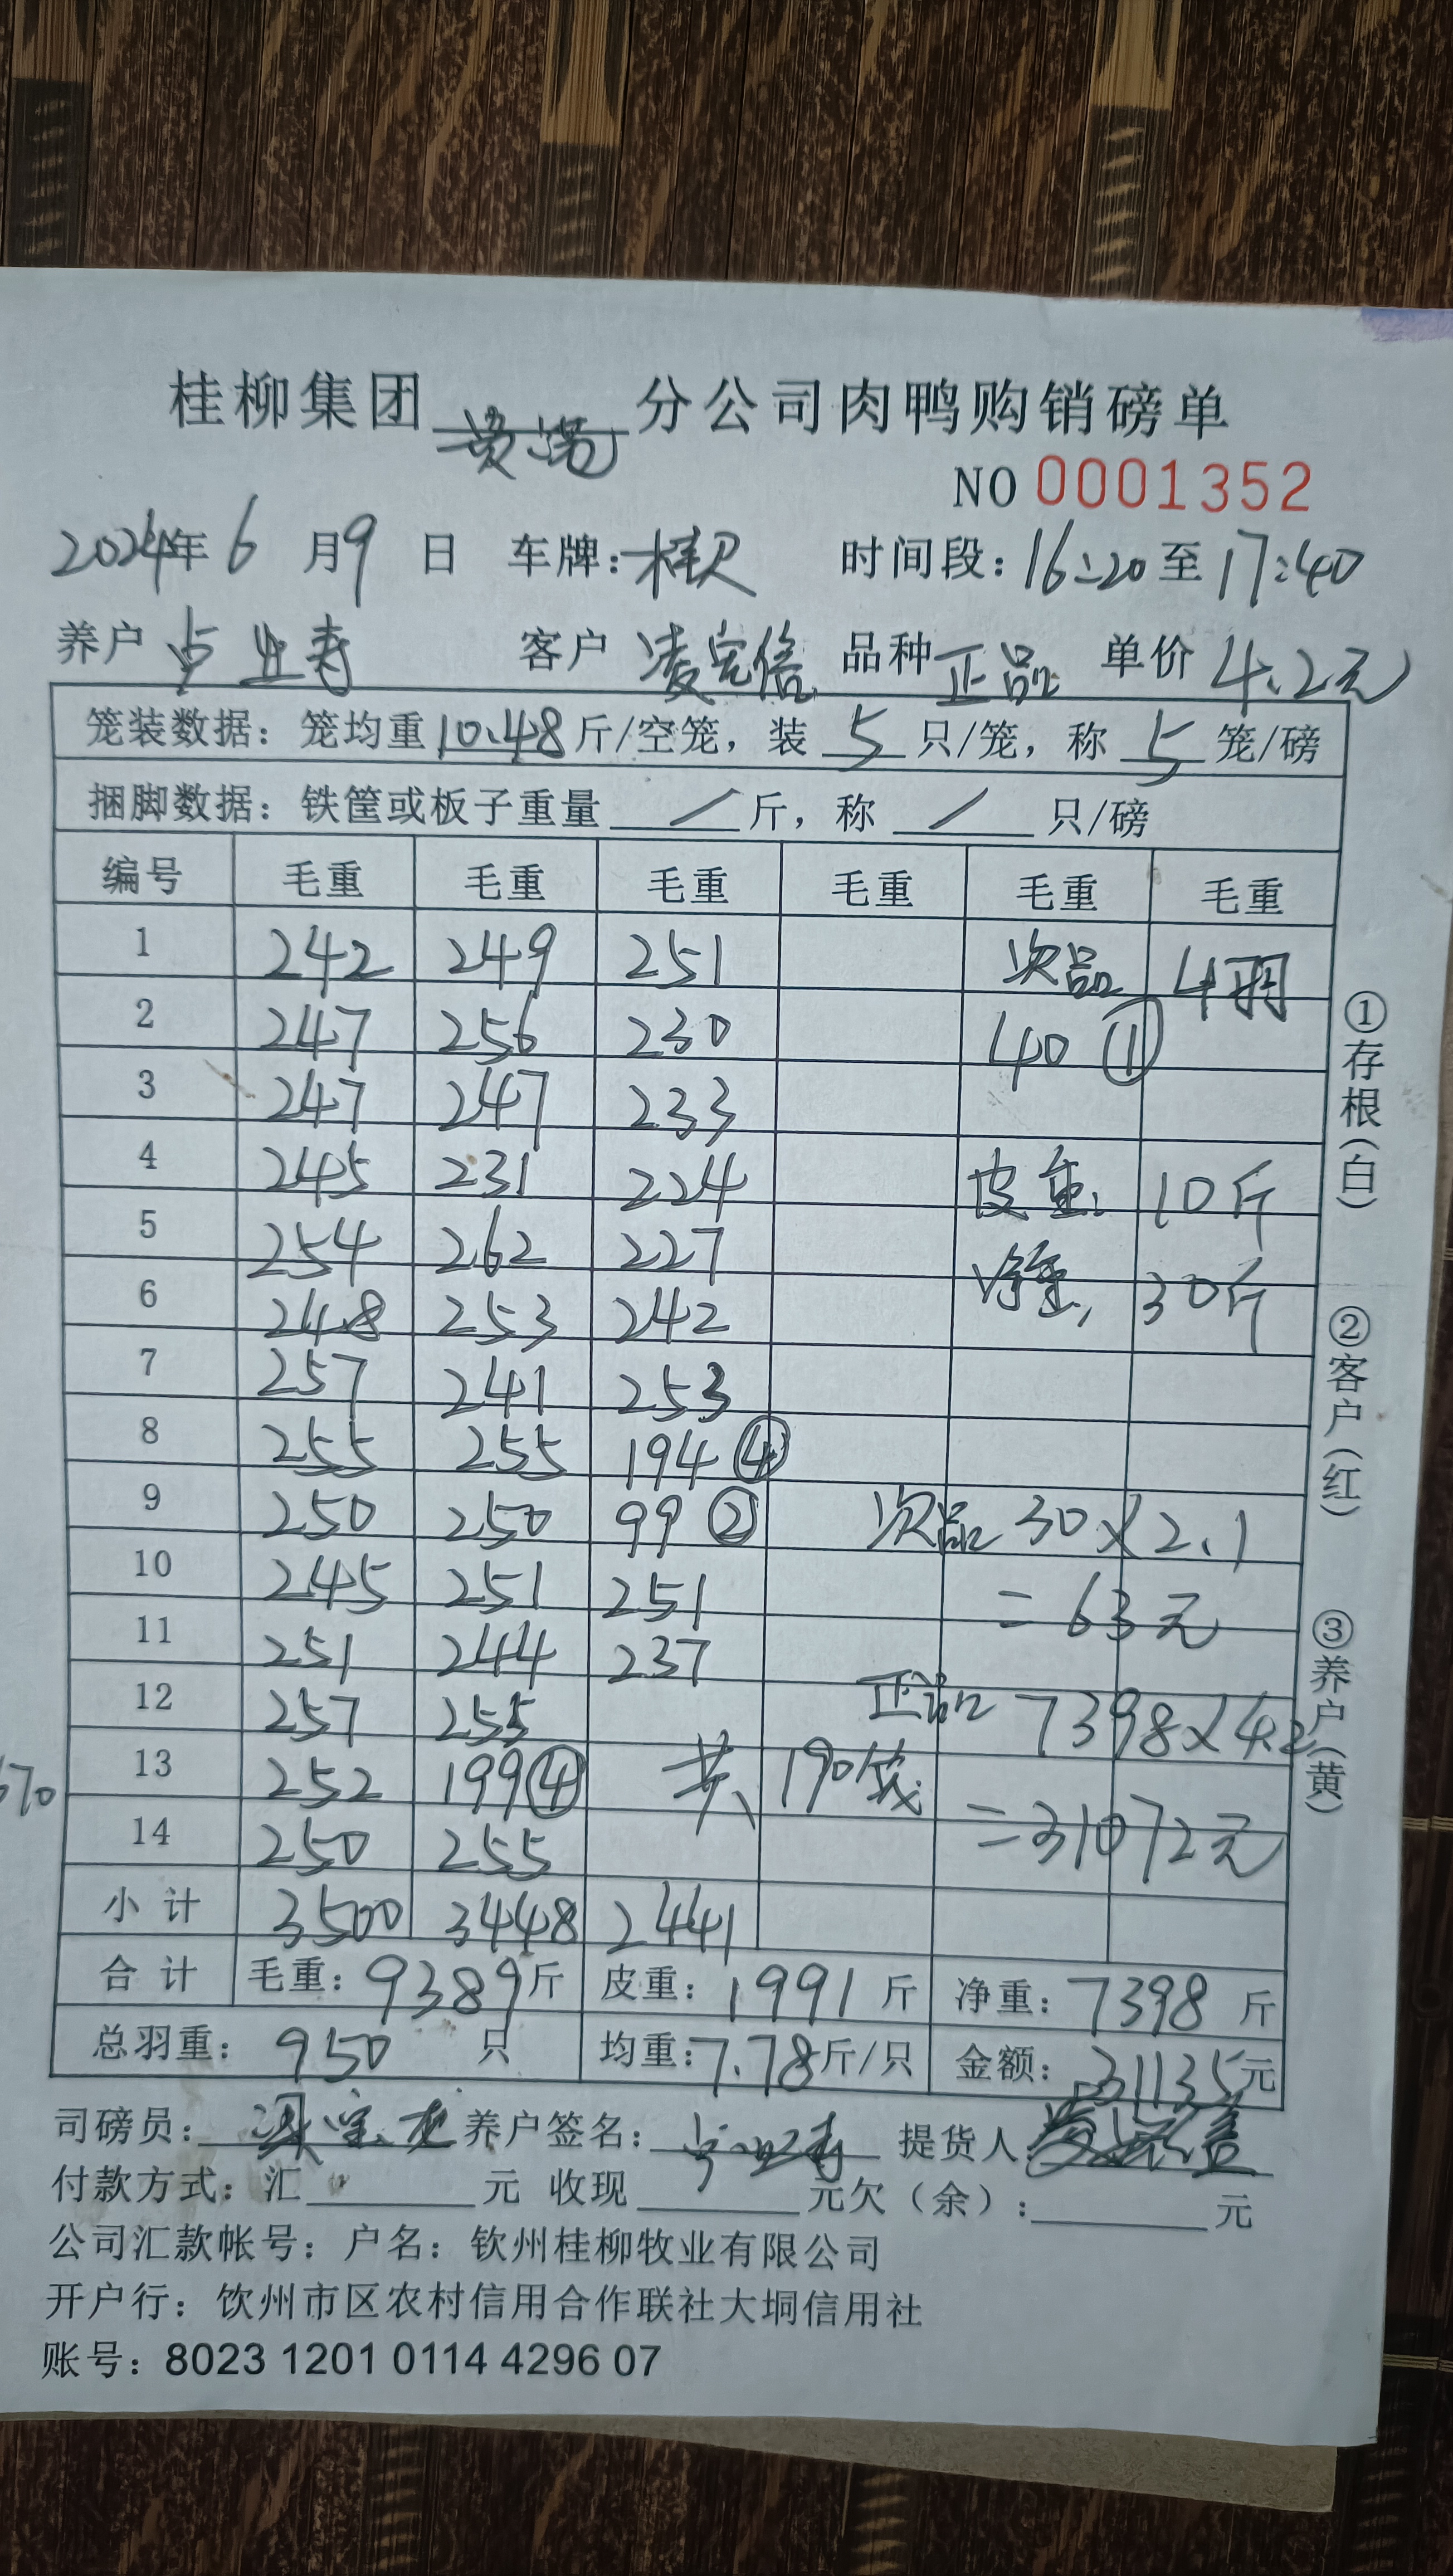 桂柳集团 贵港 分公司肉鸭购销磅单
NO 0001352
2024年 6 月 9 日 车牌: 桂 时间段: 16:20 至 17:40
养户 卢业寿 客户 凌宗信 品种 正品 单价 4.2元
笼装数据: 笼均重 10.48 斤/空笼, 装 5 只/笼, 称 5 笼/磅
捆脚数据: 铁筐或板子重量 / 斤, 称 / 只/磅
编号 毛重 毛重 毛重 毛重 毛重 毛重
1 242 249 251 次品 4羽
2 247 256 230 40 ①
3 247 247 233
4 245 231 224 皮重: 10斤
5 254 262 227 净重: 30斤
6 248 253 242
7 257 241 253
8 255 255 194 ④
9 250 250 99 ② 次品 30×2.1
10 245 251 251 =63元
11 251 244 237
12 257 255 正品 7398×4.2
13 252 199④ 共 190笼
14 250 255 =31072元
小 计 3500 3448 2441
合 计 毛重: 9389斤 皮重: 1991 斤 净重: 7398 斤
总羽重: 950 只 均重: 7.78斤/只 金额: 31135元
司磅员: 养户签名: 卢业寿 提货人 凌宗信
付款方式: 汇 元 收现 元欠(余): 元
公司汇款帐号: 户名: 钦州桂柳牧业有限公司
开户行: 饮州市区农村信用合作联社大垌信用社
账号: 8023 1201 0114 4296 07
①存根(白)
②客户(红)
③养户(黄)